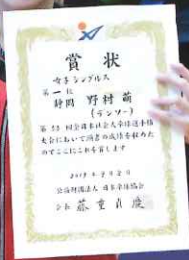 賞状
女子シングルス
第一位
静岡 野村 萌
(ランソー)
第53回全日本社会人卓球選手権
大会において頭書の成績を収めた
のでここにこれを賞します
2019年9月2日
公益財団法人 日本卓球協会
会長 藤重貞慶